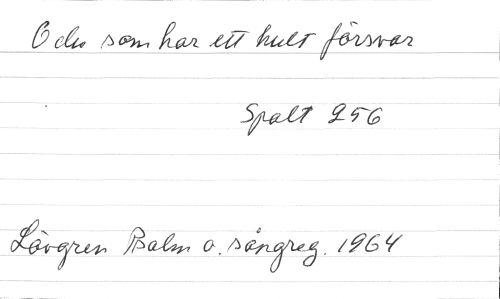 O du som har ett hult försvar
Spalt 256
Lövgren Psalm o. sångreg. 1964